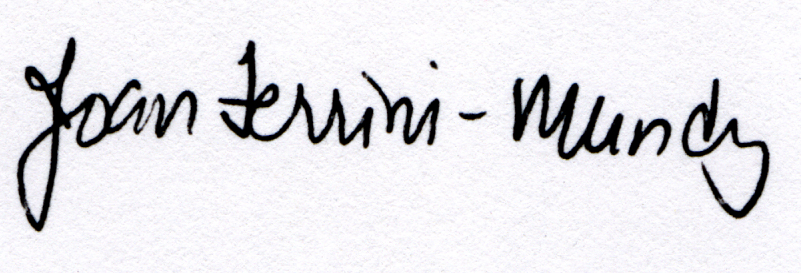 Joan Ferrini-Mundy